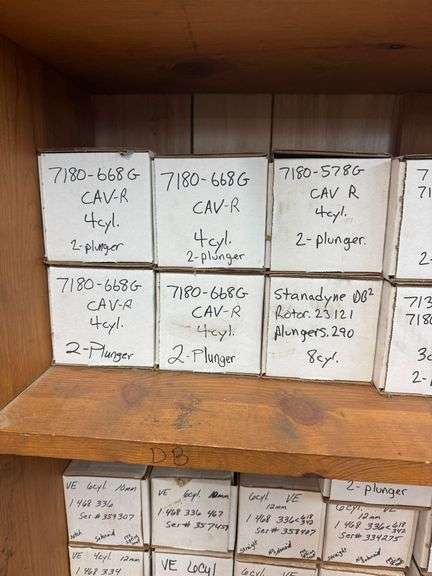 7180-668G
CAV-R
4cyl.
2-plunger
7180-668G
CAV-R
4cyl.
2-plunger
7180-578G
CAV R
4cyl.
2-plunger.
7
2-
7180-668G
CAV-R
4cyl.
2-Plunger
7180-668G
CAV-R
4cyl.
2-Plunger
Stanadyne DB2
Rotor. 23121
Plungers .290
8cyl.
713
718
3c
2-
DB
VE 6cyl 10mm
1 468 336
Ser# 359307
VE 6cyl. 10mm
1 468 336 467
Ser# 357457
6cyl. VE
12mm
1 468 336
Ser# 358487
straight
2-plunger
6cyl. VE
12mm
1 468 336
Ser# 334275
straight
VE 4cyl 12mm
1 468 334
VE 6cyl
6cyl. VE
6cyl. VE